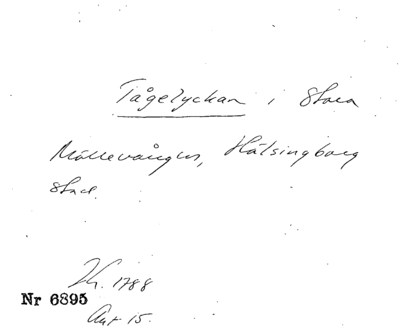 Tågelyckan i Stora
Möllevången, Hälsingborg
stad.
Kh. 1788
Nr 6895
Akt 15.